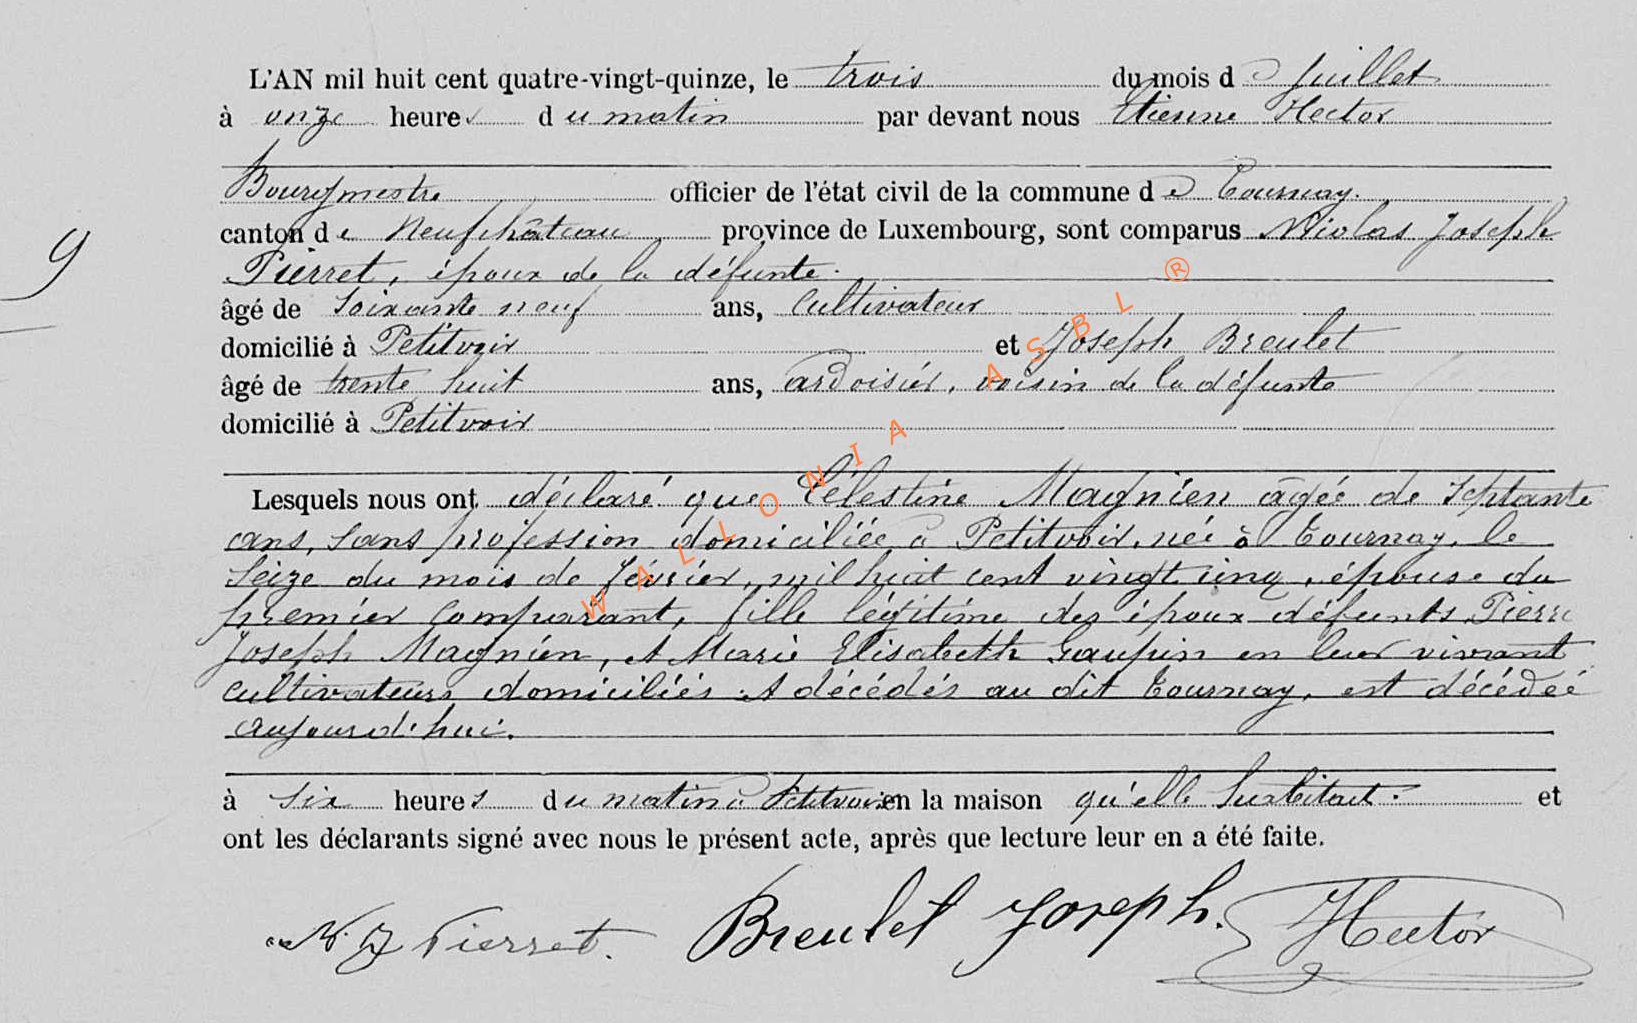 L'AN mil huit cent quatre-vingt-quinze, le trois du mois de Juillet
à onze heures du matin par devant nous Etienne Hector
Bourgmestre officier de l'état civil de la commune de Tournay.
9
canton de Neufchâteau province de Luxembourg, sont comparus Nicolas Joseph
Pierret, époux de la défunte.
âgé de soixante neuf ans, Cultivateur
domicilié à Petitvoir et Joseph Breulet
âgé de trente huit ans, ardoisier, voisin de la défunte
domicilié à Petitvoir
Lesquels nous ont déclaré que Célestine Magnien âgée de septante
ans, sans profession domiciliée à Petitvoir, née à Tournay, le
seize du mois de février, mil huit cent vingt cinq, épouse du
premier comparant, fille légitime des époux défunts Pierre
Joseph Magnien, et Marie Elisabeth Gaupin en leur vivant
cultivateurs domiciliés et décédés au dit Tournay, est décédée
aujourd'hui.
à six heures du matin à Petitvoir en la maison qu'elle habitait. et
ont les déclarants signé avec nous le présent acte, après que lecture leur en a été faite.
N. J. Pierret. Breulet Joseph. Hector
WALLONIA ASBL ®